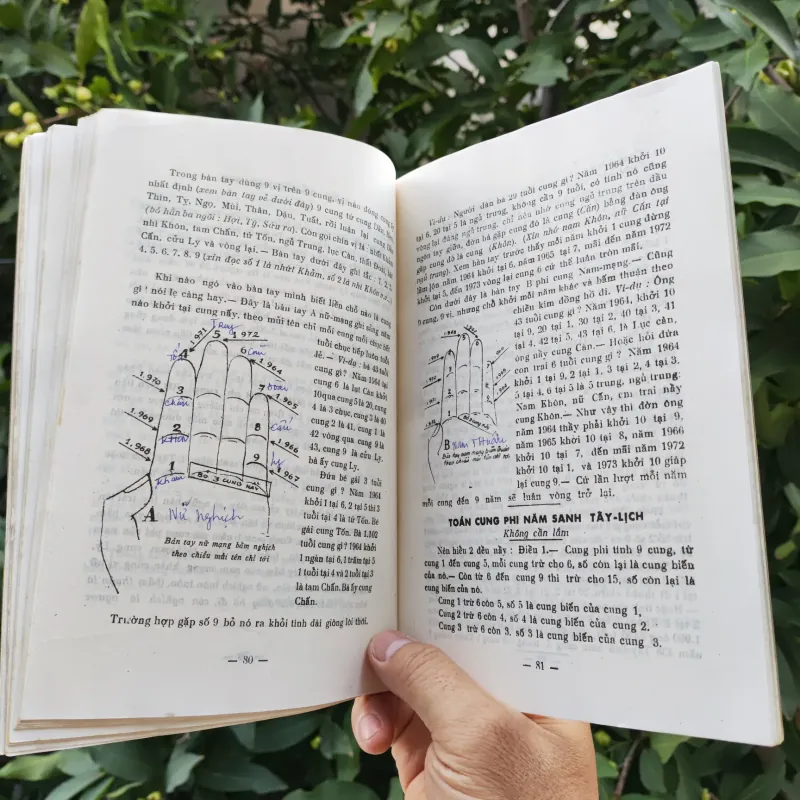 Trong bàn tay dùng 9 vị trên 9 cung, vị nào đúng cung
nhất định (xem bàn tay vẽ dưới đây) 9 cung từ cung Dần, Mẹo,
Thìn, Tỵ, Ngọ, Mùi, Thân, Dậu, Tuất, rồi luân lại cung
(bỏ hẳn ba ngôi : Hợi, Tý, Sửu ra) Còn gọi chín vị là : nhất Khảm
nhì Khôn, tam Chấn, tứ Tốn, ngũ Trung, lục Càn, thất Đoài, bát
Cấn, cửu Ly và vòng lại. — Bàn tay dưới đây ghi tắc : 1, 2, 3
4, 5, 6, 7, 8, 9 (xin đọc số 1 là nhứt Khảm, số 2 là nhì Khôn v.v.)
Khi nào ngó vào bàn tay mình biết liền chỗ nào là cung
gì ! nói lẹ càng hay.— Đây là bàn tay A nữ-mạng ghi sẵn năm
nào khởi tại cung nấy, theo mũi tên chỉ mỗi cung mỗi chục hết
tuổi chục tiếp luôn tuổi
lẻ. — Ví-dụ : bà 43 tuổi
cung gì ? Năm 1964 tại
cung 6 là lục Càn khởi
10 qua cung 5 là 20, cung
4 là 3 chục, cung 3 là 40
cung 2 là 41, cung 1 là
42 vòng qua cung 9 là
43, cung 9 là cửu Ly.
bà ấy cung Ly.
Đứa bé gái 3 tuổi
cung gì ? Năm 1964
khởi tại cung 6, 1, 2 tại 5 thì 3
tuổi tại 4 là tứ Tốn. Bé
gái cung Tốn. Bà 1.102
tuổi cung gì ? 1964 khởi
1 ngàn tại 6, 1 trăm tại 5
1 tuổi tại 4 và 2 tuổi tại 3
là tam Chấn. Bà ấy cung
Chấn.
1.971
Trung
5
1.972
4
Tốn
6
Càn
1.964
1.970
3
Chấn
7
Đoài
1.965
1.969
2
Khôn
8
Cấn
1.966
1.968
1
Khảm
9
Ly
1.967
BỎ 3 CUNG NẦY
A Nữ nghịch
Bàn tay nữ mạng bấm nghịch
theo chiều mũi tên chỉ tới
Trường hợp gặp số 9 bỏ nó ra khỏi tính dài giòng lôi thôi.
— 80 —
Ví-dụ : Người đàn bà 29 tuổi cung gì ? Năm 1964 khởi 10
tại 6, 20 tại 5 là ngũ trung, không cần 9 tuổi, có tính nó cũng
vòng lại đáng ngũ trung, chỉ hỏi nhờ cung ngũ trung trên đầu
ngón tay giữa, đờn bà gặp cung đó là cung (Cấn) bằng đàn ông
gặp cung đó là cung (Khôn). (Xin nhớ nam Khôn, nữ Cấn tại
ngũ trung). Xem bàn tay trước thấy mỗi năm khởi 1 cung đừng
lầm lộn năm 1964 khởi tại 6, năm 1965 tại 7, mãi đến năm 1972
khởi tại 5, đến 1973 vòng lại cung 6 cứ thế luân tròn mãi.
Còn dưới đây là bàn tay B phi cung Nam-mạng.— Cũng
9 cung, 9 vì, nhưng chỗ khởi mỗi năm khác và bấm thuận theo
chiều kim đồng hồ đi. Ví-dụ : Ông
43 tuổi cung gì ? Năm 1964, khởi 10
tại 9, 20 tại 1, 30 tại 2, 40 tại 3, 41
tại 4, 42 tại 5, 43 tại 6, là Lục càn,
ông nầy cung Càn.— Hoặc hỏi đứa
con trai 6 tuổi cung gì ? Năm 1964
khởi 1 tại 9, 2 tại 1, 3 tại 2, 4 tại 3.
5 tại 4, 6 tại 5 là 5 trung, ngũ trung:
Nam Khôn, nữ Cấn, em trai nầy
cung Khôn.— Như vậy thì đờn ông
năm 1964 thầy phải khởi 10 tại 9,
năm 1965 khởi 10 tại 8, năm 1966
khởi 10 tại 7, đến mãi năm 1972
khởi 10 tại 1, và 1973 khởi 10 giáp
lại cung 9.— Cứ lần lượt mỗi năm
mỗi cung đến 9 năm sẽ luân vòng trở lại.
B Nam Thuận
Bàn tay nam mạng bấm thuận
theo chiều mũi tên chỉ tới
TOÁN CUNG PHI NĂM SANH TÂY-LỊCH
Không cần lắm
Nên hiểu 2 đều nầy : Điều 1.— Cung phi tính 9 cung, từ
cung 1 đến cung 5, mỗi cung trừ cho 6, số còn lại là cung biến
của nó.— Còn từ 6 đến cung 9 thì trừ cho 15, số còn lại là
cung biến của nó.
Cung 1 trừ 6 còn 5, số 5 là cung biến của cung 1,
Cung 2 trừ 6 còn 4, số 4 là cung biến của cung 2.
Cung 3 trừ 6 còn 3. số 3 là cung biến của cung 3.
— 81 —